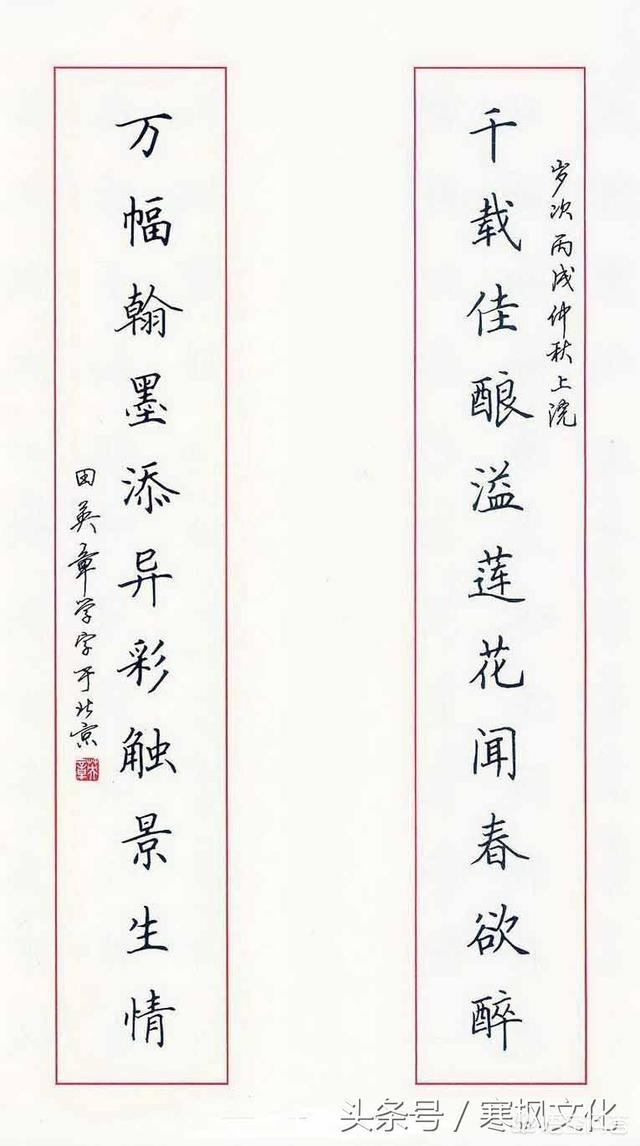 岁次丙戌仲秋上浣
千载佳酿溢莲花闻春欲醉
万幅翰墨添异彩触景生情
田英章学字于北京
头条号／寒枫文化